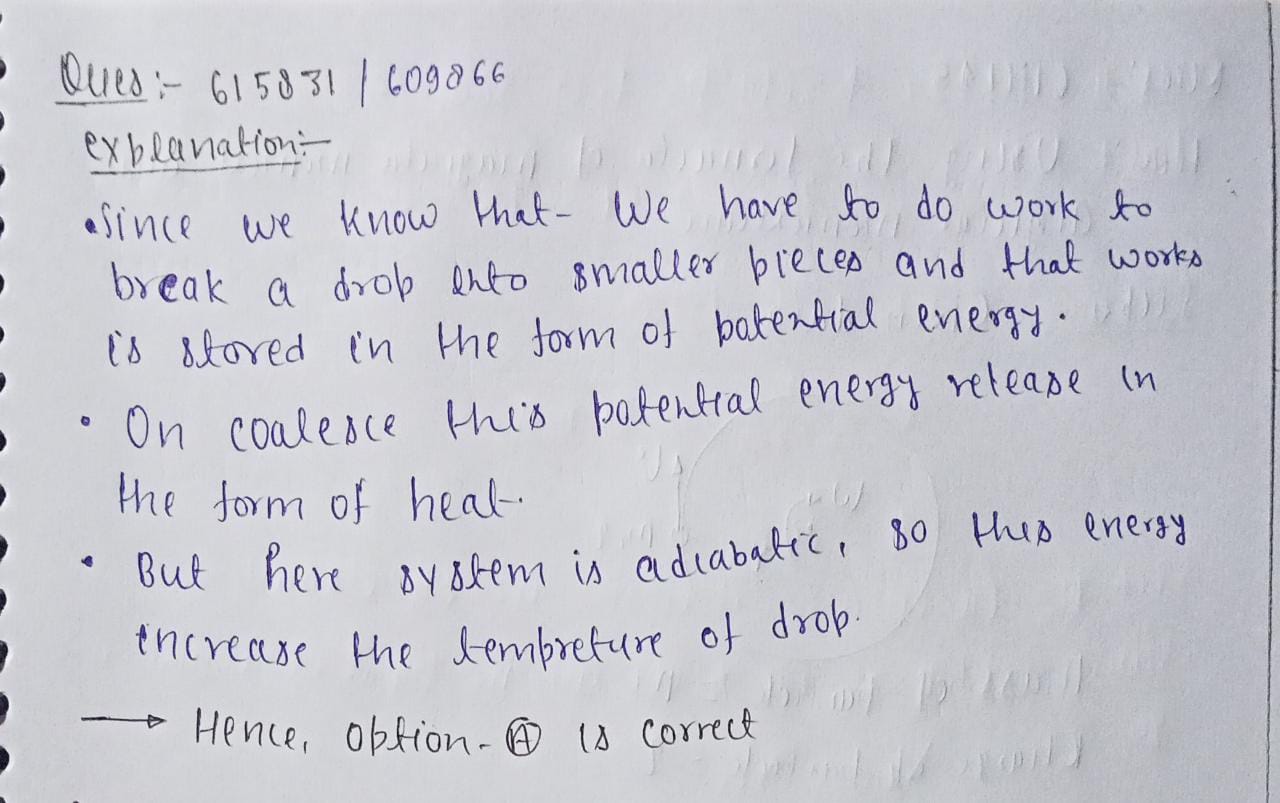 Ques :- 615831 / 609866
explanation:-
• Since we know that - We have to do work to
break a drop into smaller pieces and that works
is stored in the form of potential energy.
• On coalesce this potential energy release in
the form of heat.
• But here system is adiabatic, so this energy
increase the tempreture of drop.
→ Hence, option - Ⓐ is correct